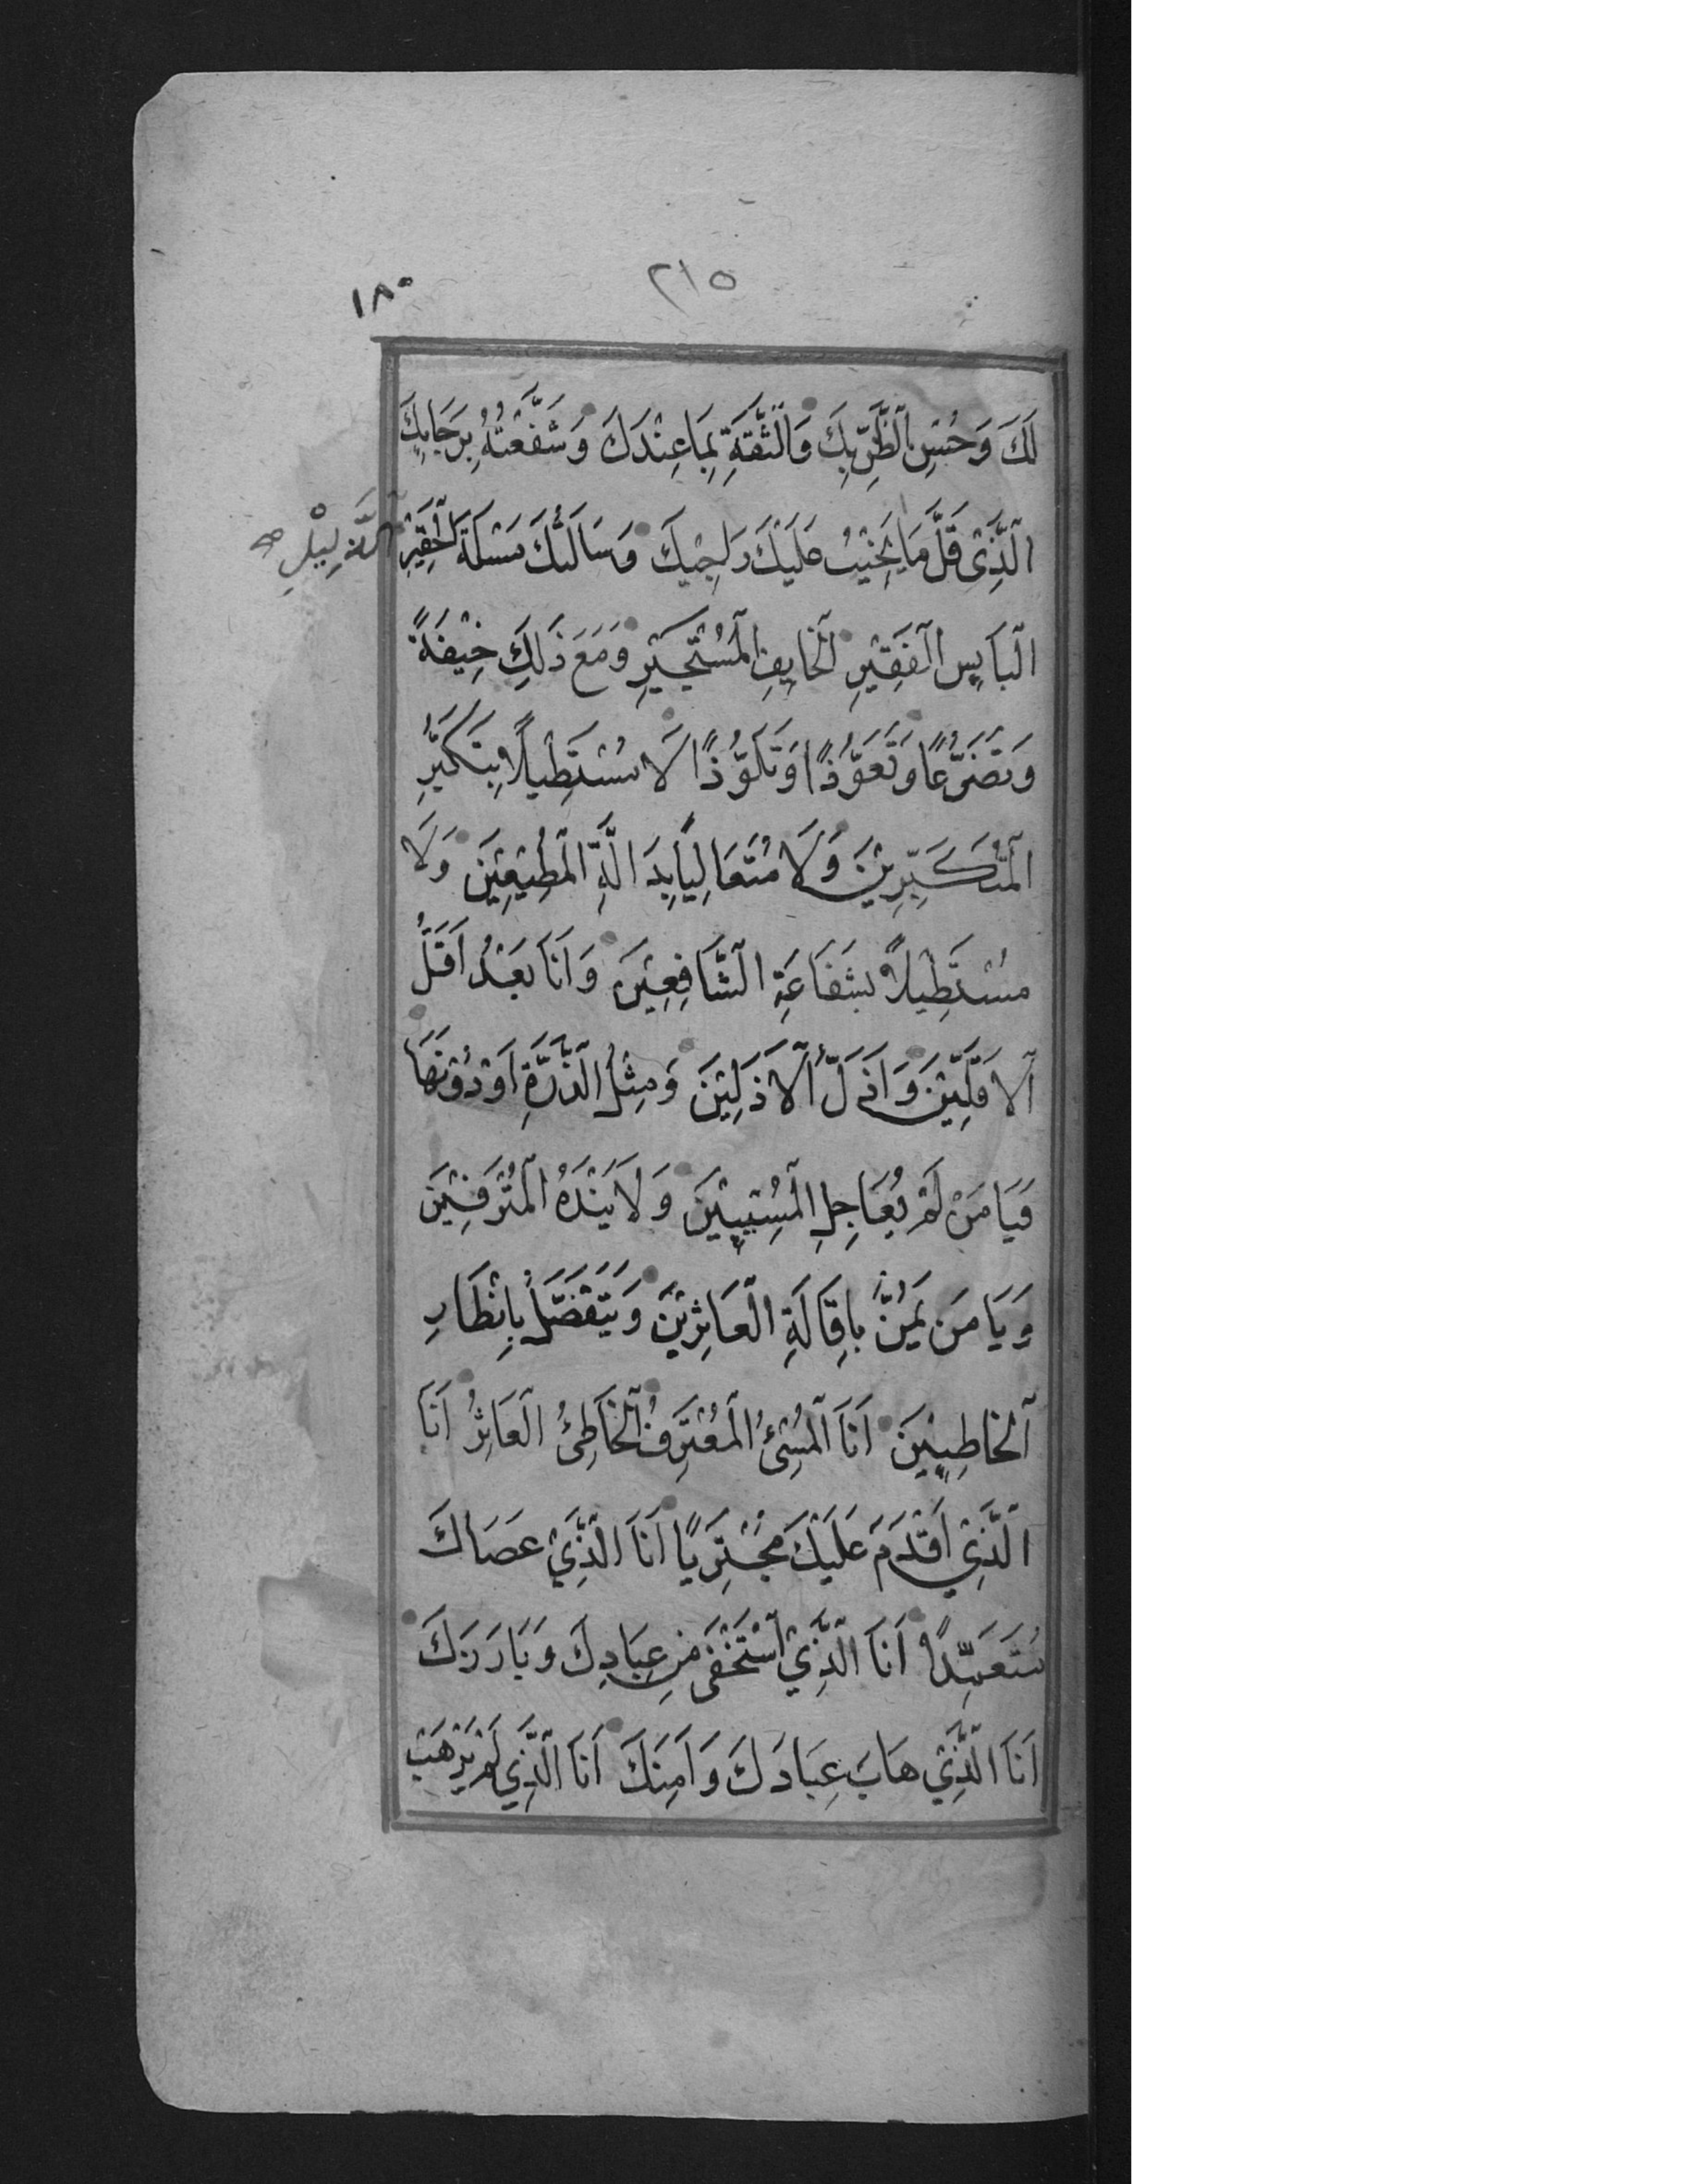 ٢١٥
١٨٠
لَكَ وَحُسْنِ الظَّنِّ بِكَ وَالثِّقَةِ بِمَا عِنْدَكَ وَشَفَّعْتُهُ بِرَجَائِكَ
الَّذِي قَلَّ مَا يَخِيْبُ عَلَيْكَ رَاجِيْكَ وَسَأَلْتُكَ مَسْئَلَةَ الْحَقِيْرِ الذَّلِيْلِ صح
الْبَايِسِ الْفَقِيْرِ الْخَايِفِ الْمُسْتَجِيْرِ وَمَعَ ذَلِكَ خِيْفَةً
وَتَضَرُّعًا وَتَعَوُّذًا وَتَلَوُّذًا لَا مُسْتَطِيْلًا بِتَكَبُّرِ
الْمُتَكَبِّرِيْنَ وَلَا مُتَعَالِيًا بِدَالَّةِ الْمُطِيْعِيْنَ وَلَا
مُسْتَطِيْلًا بِشَفَاعَةِ الشَّافِعِيْنَ وَاَنَا بَعْدُ اَقَلُّ
الْاَقَلِّيْنَ وَاَذَلُّ الْاَذَلِّيْنَ وَمِثْلُ الذَّرَّةِ اَوْ دُوْنَهَا
فَيَا مَنْ لَمْ يُعَاجِلِ الْمُسِيْئِيْنَ وَلَا يَنْدَهُ الْمُتْرَفِيْنَ
وَيَا مَنْ يَمُنُّ بِاِقَالَةِ الْعَاثِرِيْنَ وَيَتَفَضَّلُ بِاِنْظَارِ
الْخَاطِئِيْنَ اَنَا الْمُسِيْءُ الْمُعْتَرِفُ الْخَاطِئُ الْعَاثِرُ اَنَا
الَّذِي اَقْدَمَ عَلَيْكَ مُجْتَرِيًا اَنَا الَّذِي عَصَاكَ
مُتَعَمِّدًا اَنَا الَّذِي اسْتَخْفَى مِنْ عِبَادِكَ وَبَارَزَكَ
اَنَا الَّذِي هَابَ عِبَادَكَ وَاَمِنَكَ اَنَا الَّذِي لَمْ يَرْهَبْ